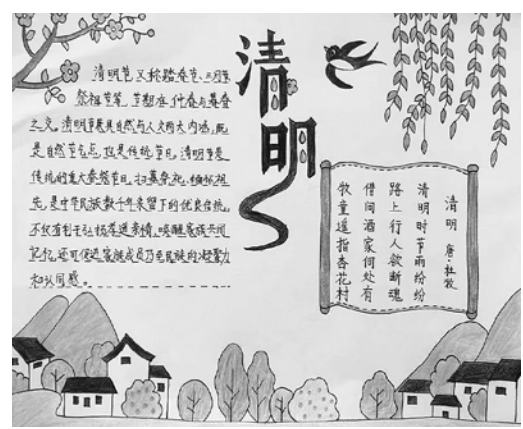 清明
清明节,又称踏春节、三月节
祭祖节等,节期在仲春与暮春
之交。清明节兼具自然与人文两大内涵,既
是自然节气点,也是传统节日,清明节是
传统的重大春祭节日,扫墓祭祀、缅怀祖
先,是中华民族数千年来留下的优良传统,
不仅有利于弘扬孝道亲情、唤醒家族共同
记忆,还可促进家族成员乃至民族的凝聚力
和认同感。
清明 唐·杜牧
清明时节雨纷纷
路上行人欲断魂
借问酒家何处有
牧童遥指杏花村